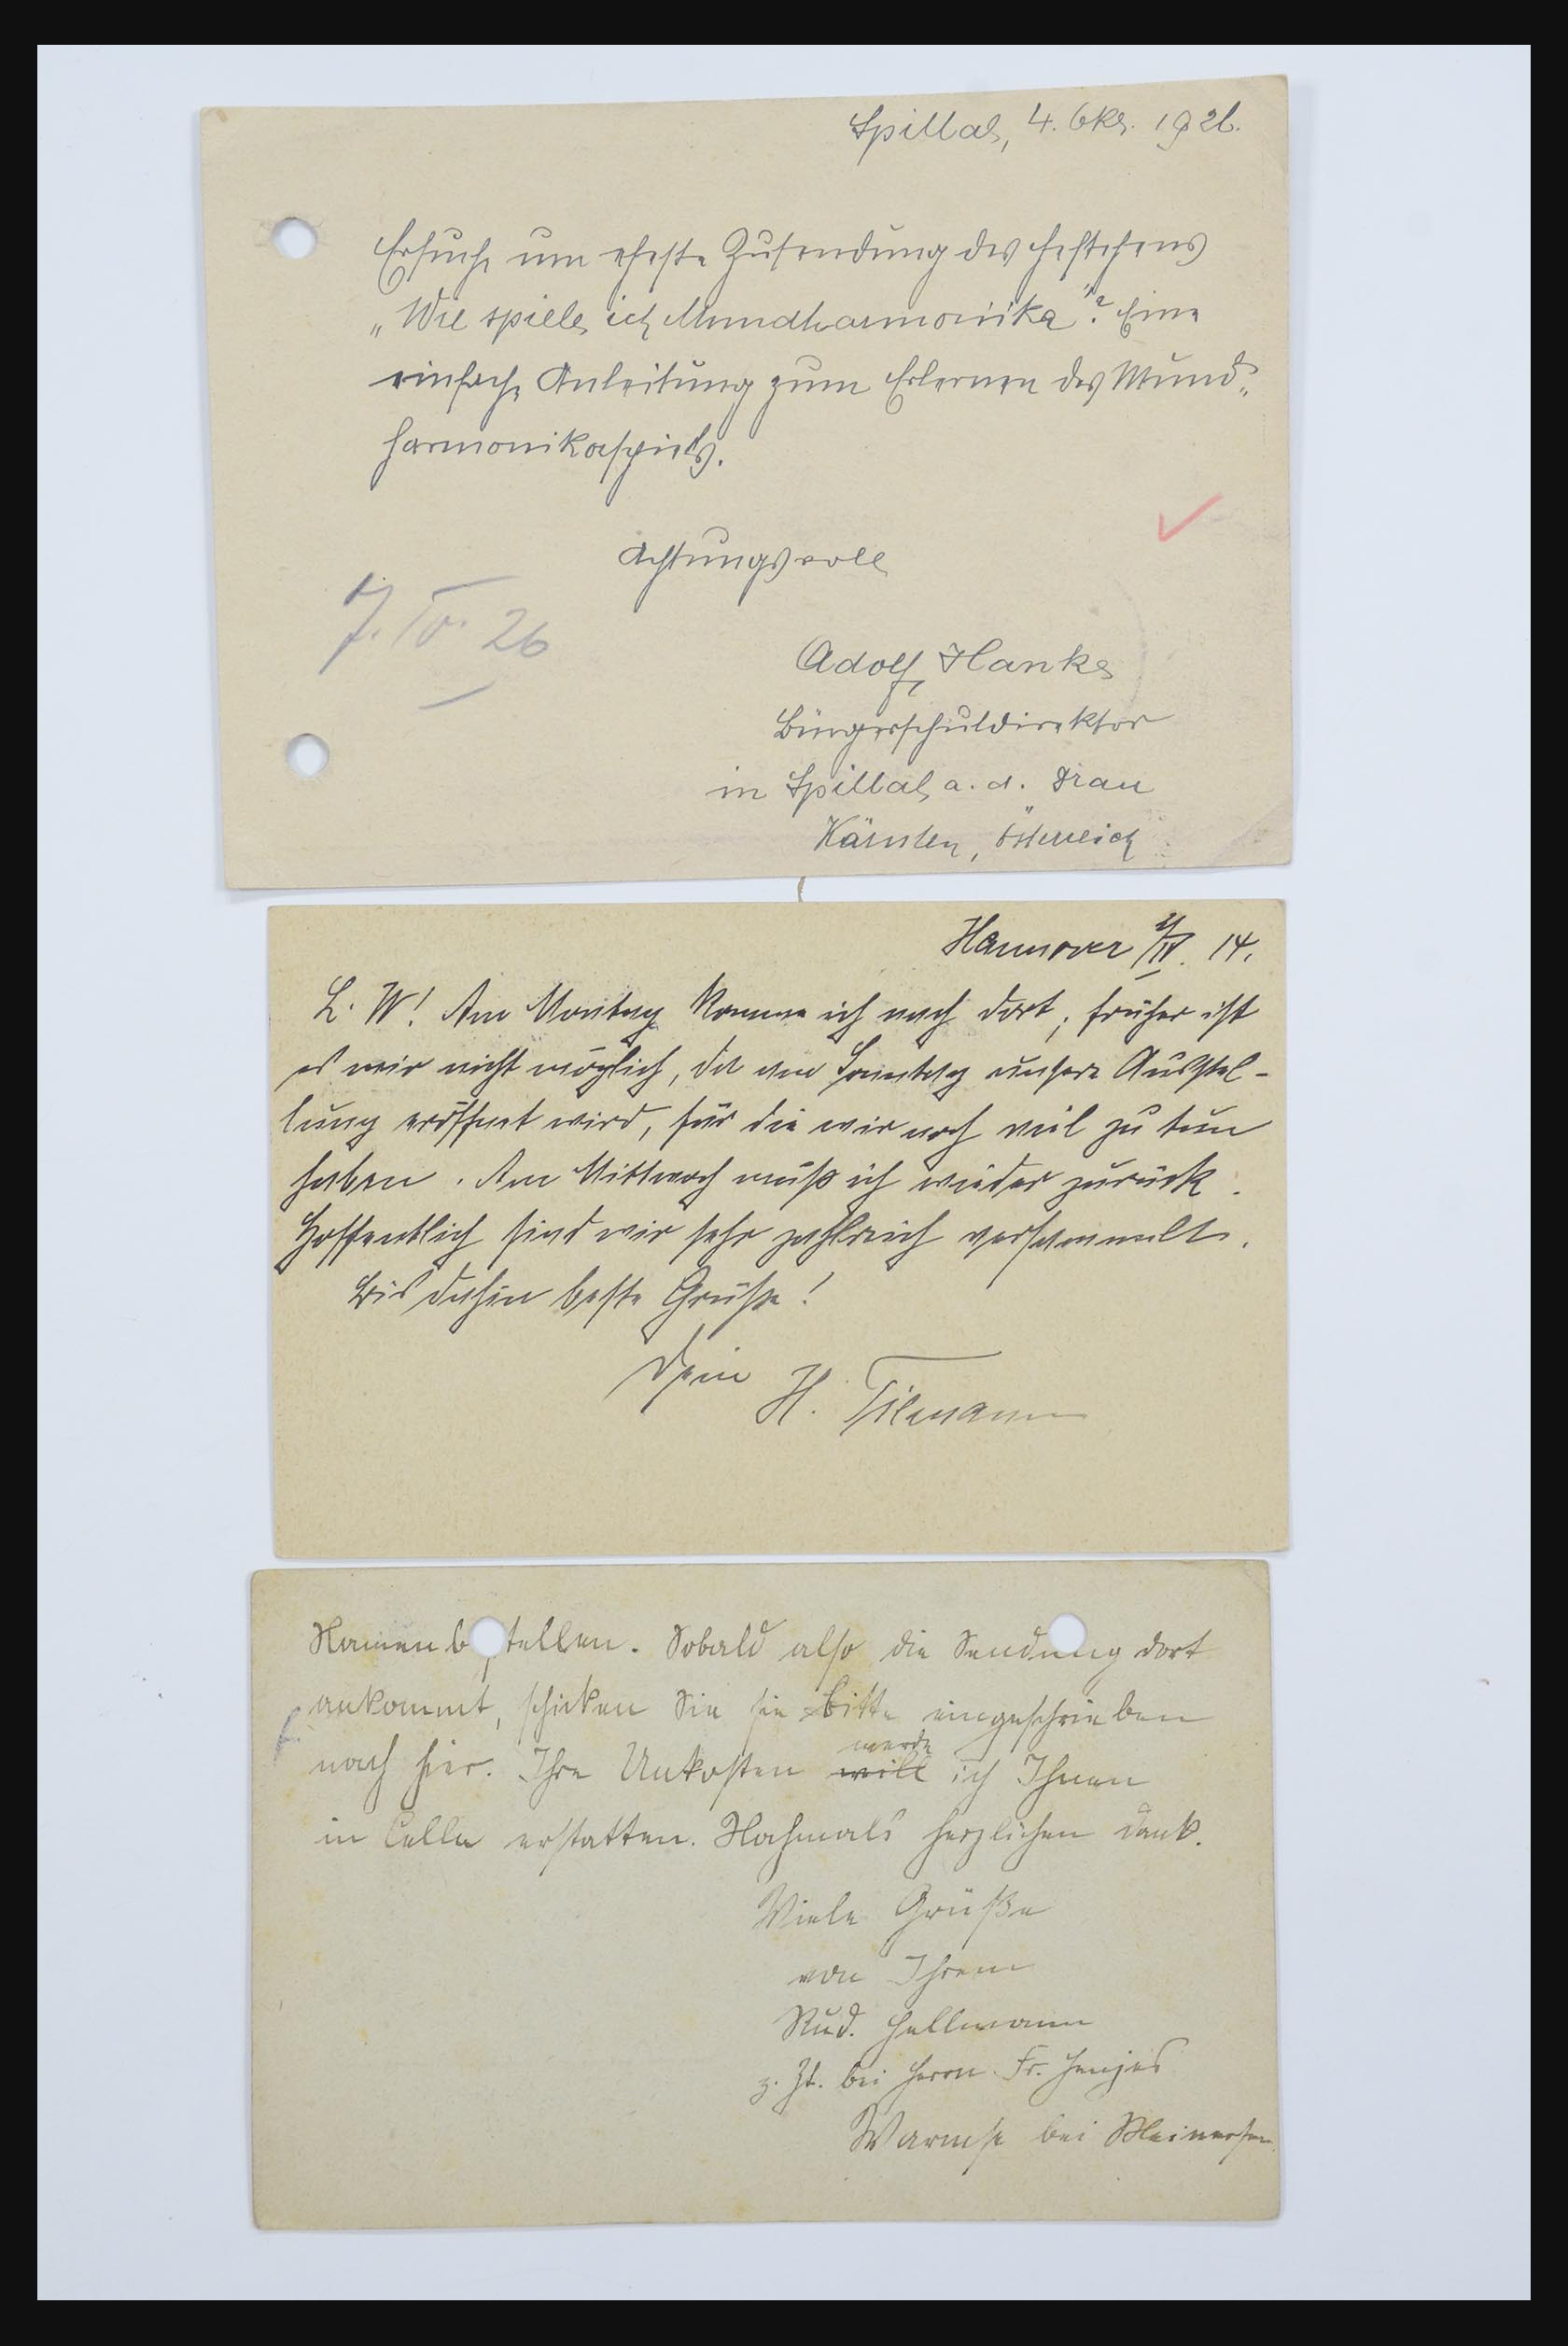 Spittal, 4. Okt. 1926.
Ersuche um eheste Zusendung des Heftchens
„Wie spiele ich Mundharmonika“? Eine
einfache Anleitung zum Erlernen des Mund-
harmonikaspiels.
Achtungsvoll
7. IV. 26
Adolf Hanke
Bürgerschuldirektor
in Spittal a. d. Drau
Kärnten, Österreich
Hannover /IV. 14.
L. W! Am Montag komme ich nach dort; früher ist
es mir nicht möglich, da am Sonntag unsere Ausstel-
lung eröffnet wird, für die wir noch viel zu tun
haben. Am Mittwoch muß ich wieder zurück.
Hoffentlich sind wir sehr zahlreich versammelt.
Bis dahin beste Grüße!
Dein H. Tilmann
Namen bestellen. Sobald also die Sendung dort
ankommt, schicken Sie sie bitte eingeschrieben
werde
nach hier. Ihre Unkosten will ich Ihnen
in Celle erstatten. Nochmals herzlichen Dank.
Viele Grüße
von Ihrem
Rud. Hellmann
z. Zt. bei Herrn Fr. Henjes
Warmse bei Meinersen